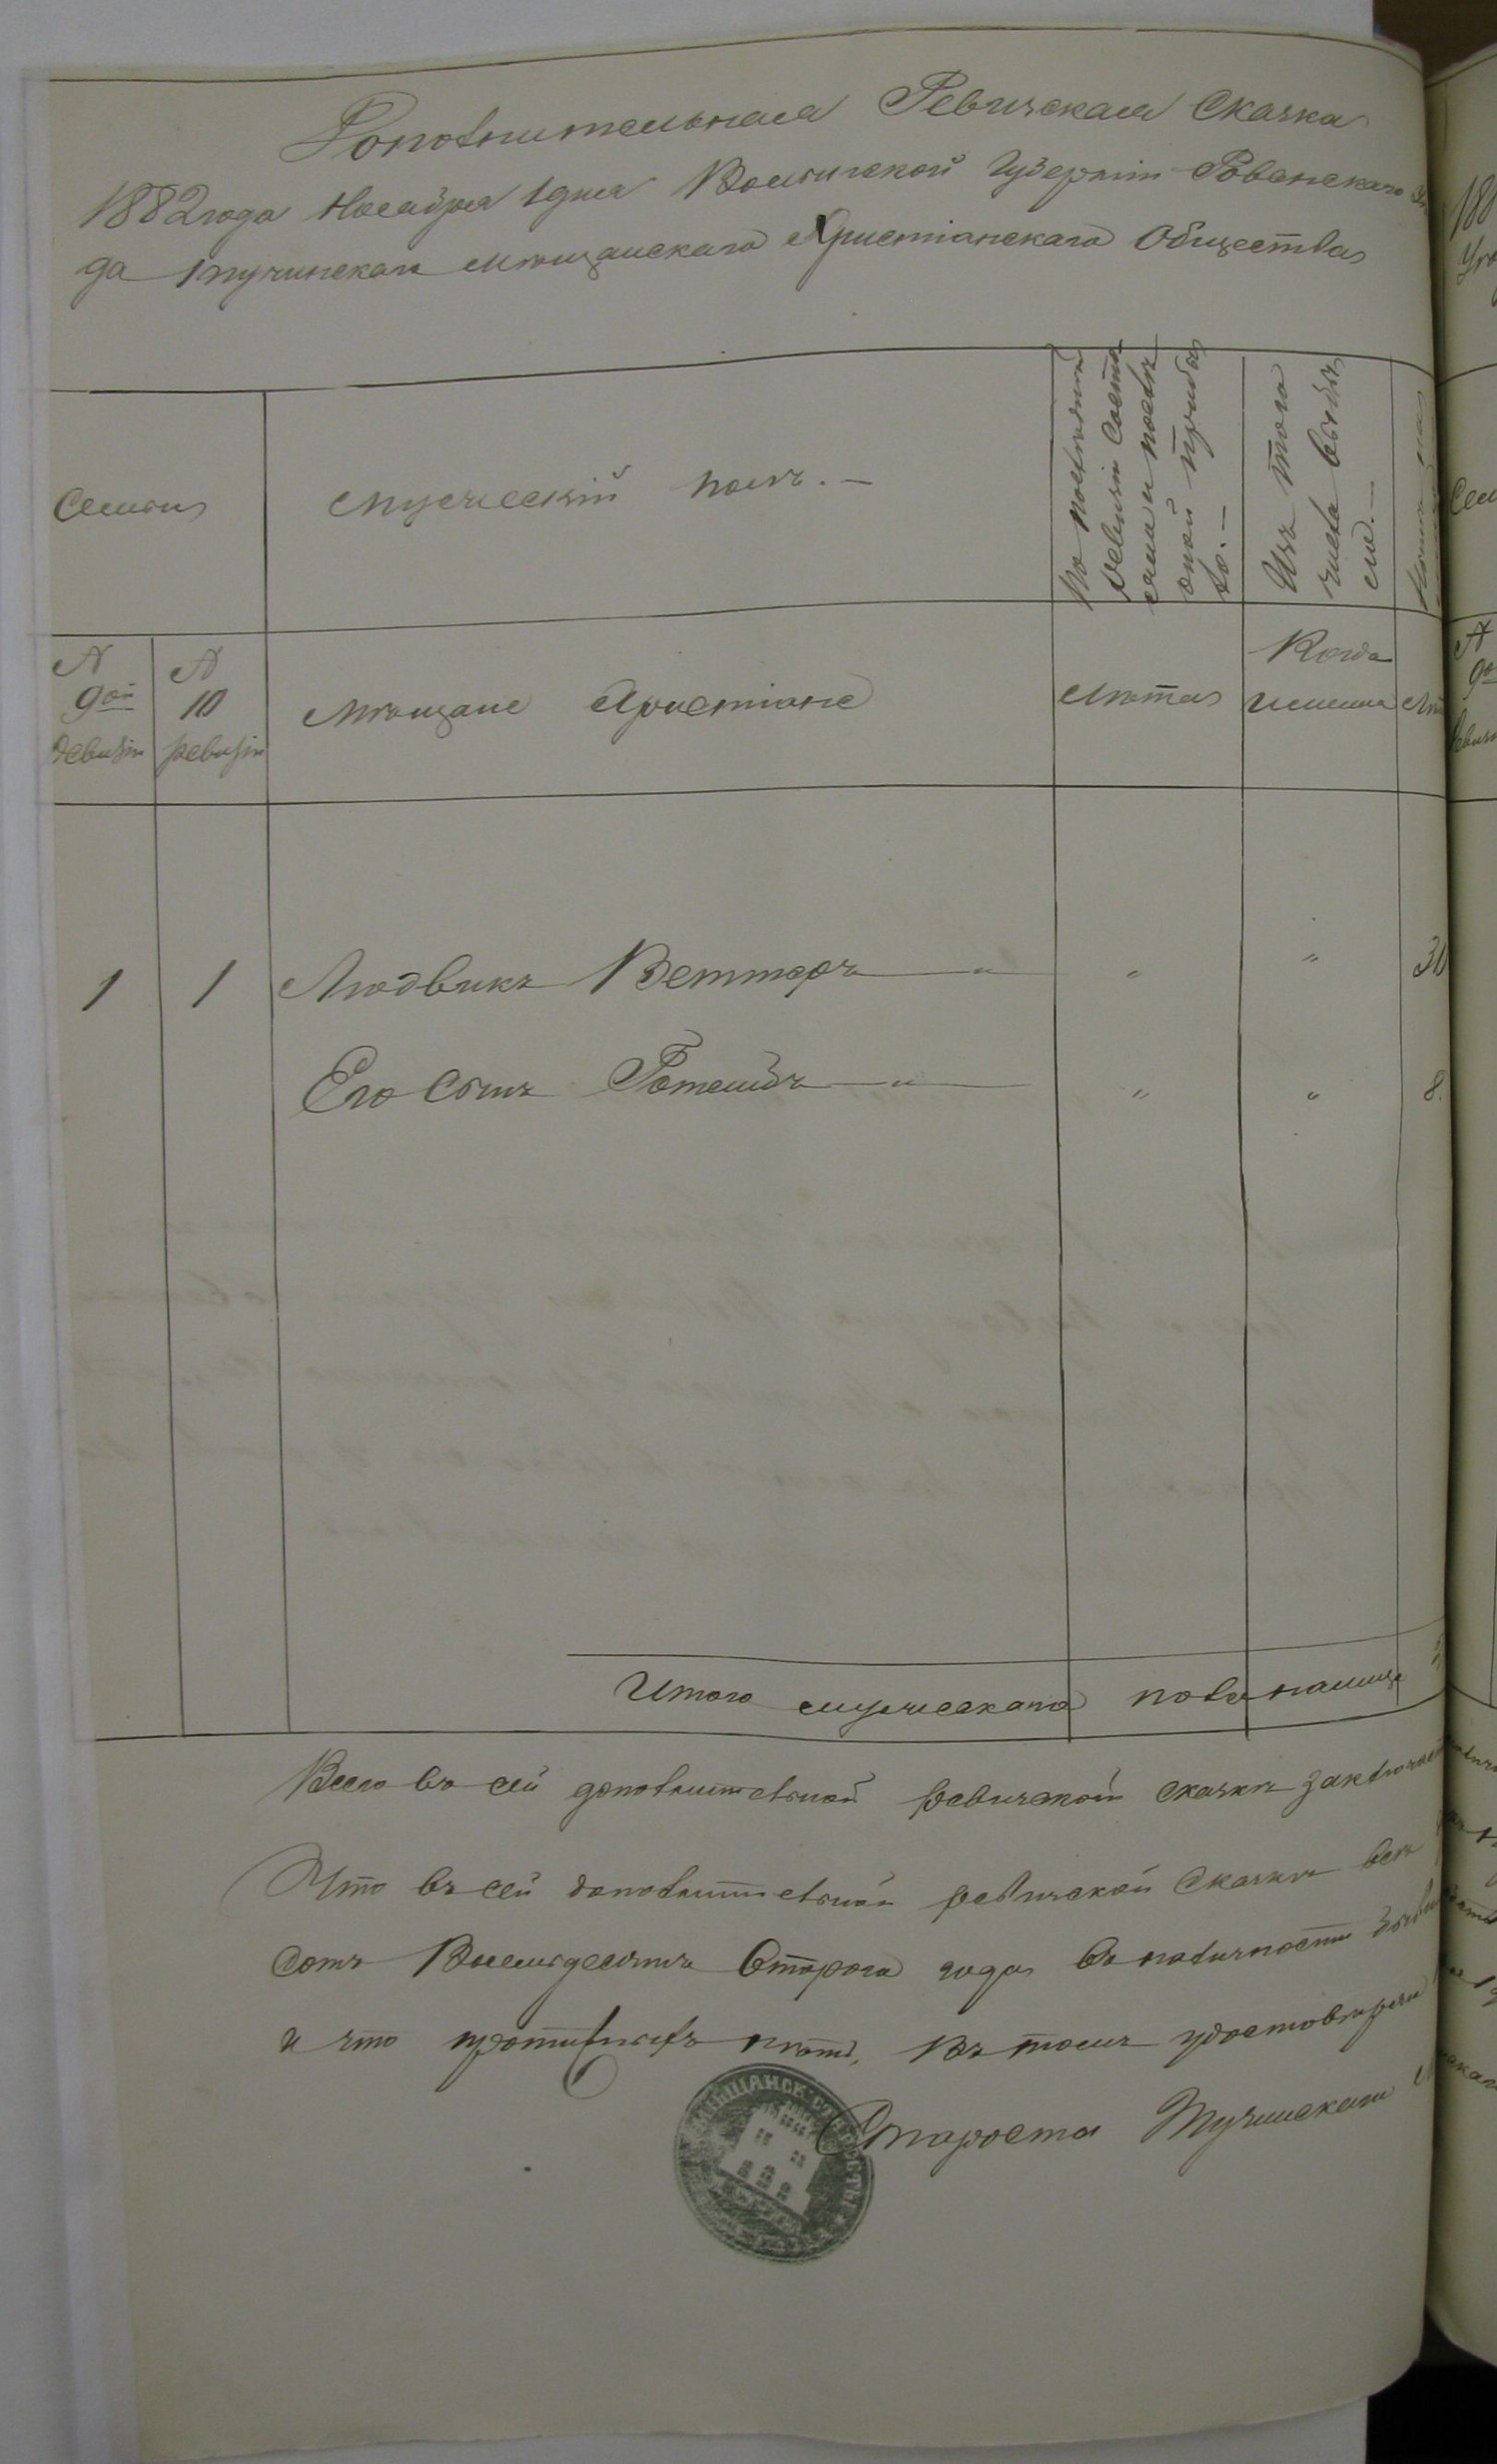 Дополнительная Ревизская Сказка
1882 года Ноября 1 дня Волынской Губерніи Ровенскаго Уѣз
да Тучинскаго мѣщанскаго Христіанскаго Общества
Семьи
Мужескій полъ. —
По последней
ревизіи состо
яло и послѣ
оной прибы
ло. —
Изъ того
числа выбы
ло. —
№
9ой
ревизіи
№
10
ревизіи
Мѣщане Христіане
Лѣта
Когда
именно
Лѣт
1 1 Людвикъ Веттеръ — " — " " 30
Его Сынъ Готлибъ — " — " " 8.
Итого мужескаго пола налице
Всего въ сей дополнительной ревизской сказкѣ заключает
Что въ сей дополнительной ревизской Сказкѣ всѣ
сотъ Восемьдесятъ Втораго года въ наличности
и что прописныхъ нѣтъ, въ томъ удостовѣряем
Староста Тучинскаго М
МѢЩАНСК. СТАРОСТЫ
188
Уѣз
Сем
№
9ой
ревизі